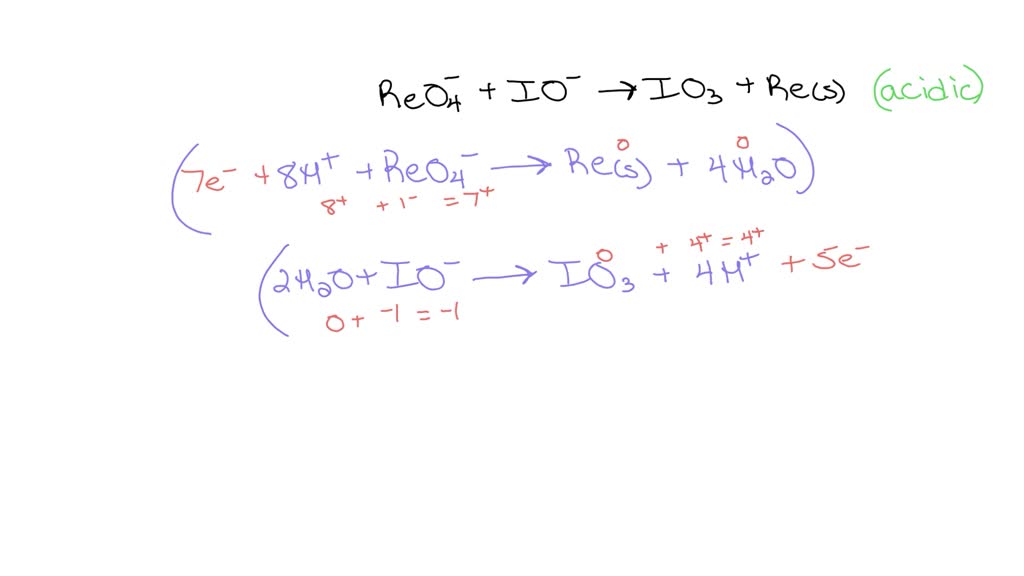 ReO₄⁻ + IO⁻ → IO₃ + Re(s) (acidic)
0 0
(7e⁻ + 8H⁺ + ReO₄⁻ → Re(s) + 4H₂O)
8⁺ + 1⁻ = 7⁺
0 + 4⁺ = 4⁺
(2H₂O + IO⁻ → IO₃ + 4H⁺ + 5e⁻
0 + -1 = -1